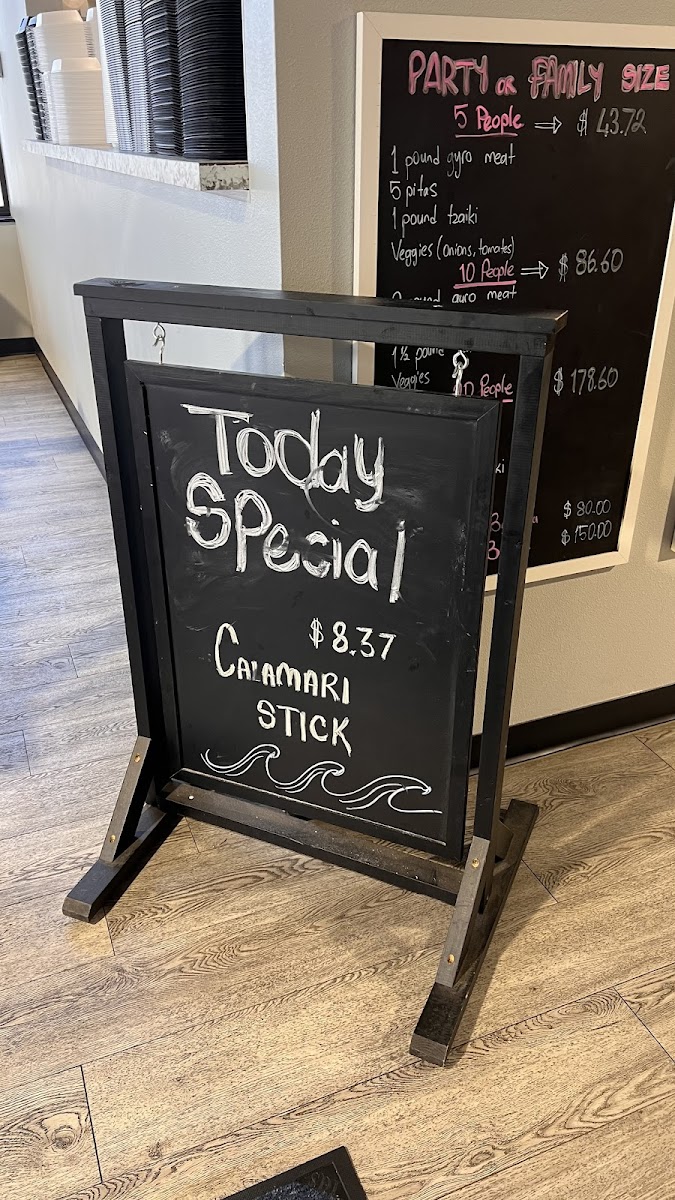 PARTY OR FAMILY SIZE
5 People ⇒ $ 43.72
1 pound gyro meat
5 pitas
1 pound tzaiki
Veggies (onions, tomatoes)
10 People ⇒ $ 86.60
gyro meat
1 ½ pound
Veggies
People
$ 178.60
$ 80.00
$ 150.00
Today
SPecial
$ 8.37
CALAMARI
STICK